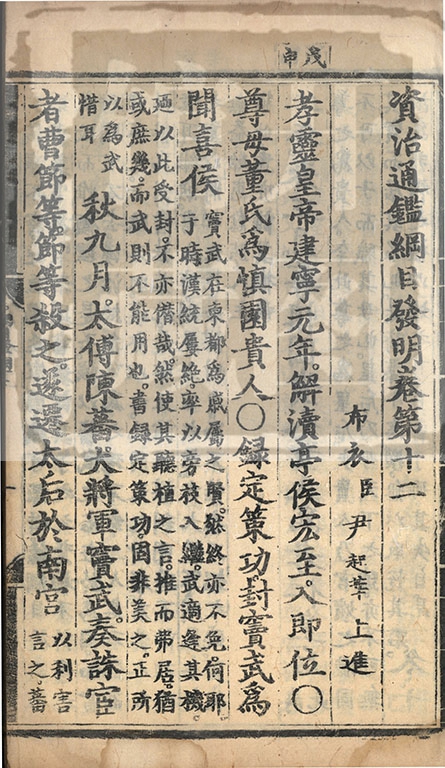 戊申
資治通鑑綱目發明卷第十二
布衣臣尹起莘上進
孝靈皇帝建寧元年。解瀆亭侯宏至。入即位〇
尊母董氏為慎園貴人〇録定策功。封竇武為
聞喜侯
竇武在東都為戚屬之賢。然終亦不免。何耶
于時漢統屢絶。率以旁枝入繼。武適逢其機
廼以此受封。不亦僭哉。然使其聽植之言。推而弗居。猶
或庶幾。而武則不能用也。書録定策功。因非美之。正所
以為武
惜耳
秋九月。太傅陳蕃大將軍竇武。奏誅宦
者曹節等。節等殺之。遂遷太后於南宮
以利害
言之。蕃